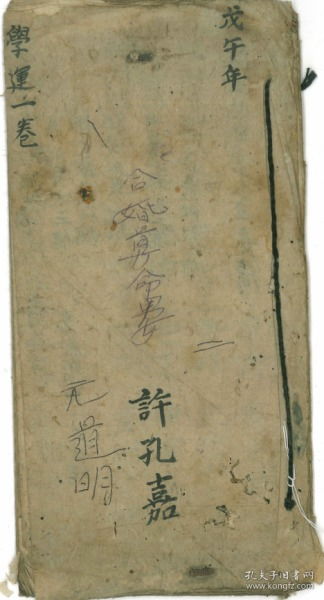 戊午年
學運一卷
合婚算命書
二
許孔嘉
元道明
孔夫子旧书网
www.kongfz.com